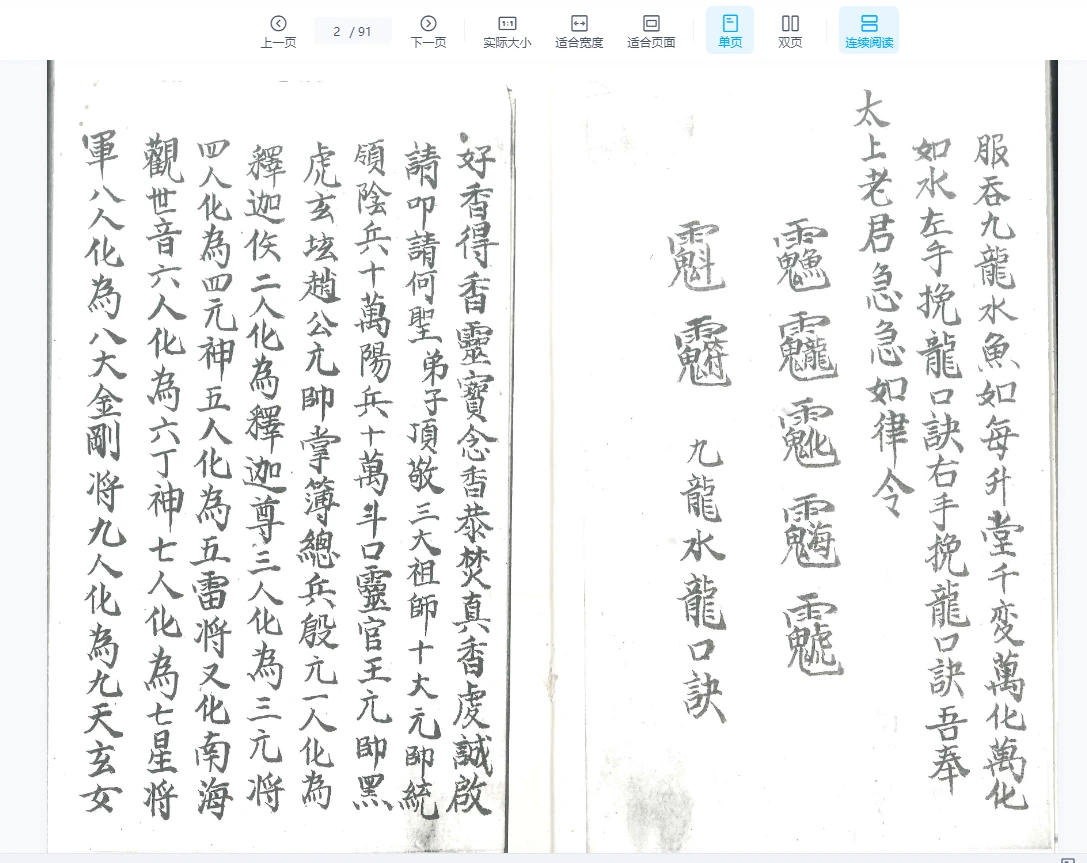 上一页
2 / 91
下一页
1:1
实际大小
适合宽度
适合页面
单页
双页
连续阅读
服吞九龍水魚如每升堂千変萬化萬化
如水左手挽龍口訣右手挽龍口訣吾奉
太上老君急急如律令
九龍水龍口訣
好香得香靈寶念香恭焚真香虔誠啟
請叩請何聖弟子頂敬三大祖師十大元帥統
領陰兵十萬陽兵十萬斗口靈官王元帥黑
虎玄坛趙公元帥掌簿總兵殷元一人化為
釋迦佚二人化為釋迦尊三人化為三元將
四人化為四元神五人化為五雷将又化南海
觀世音六人化為六丁神七人化為七星将
軍八人化為八大金剛将九人化為九天玄女